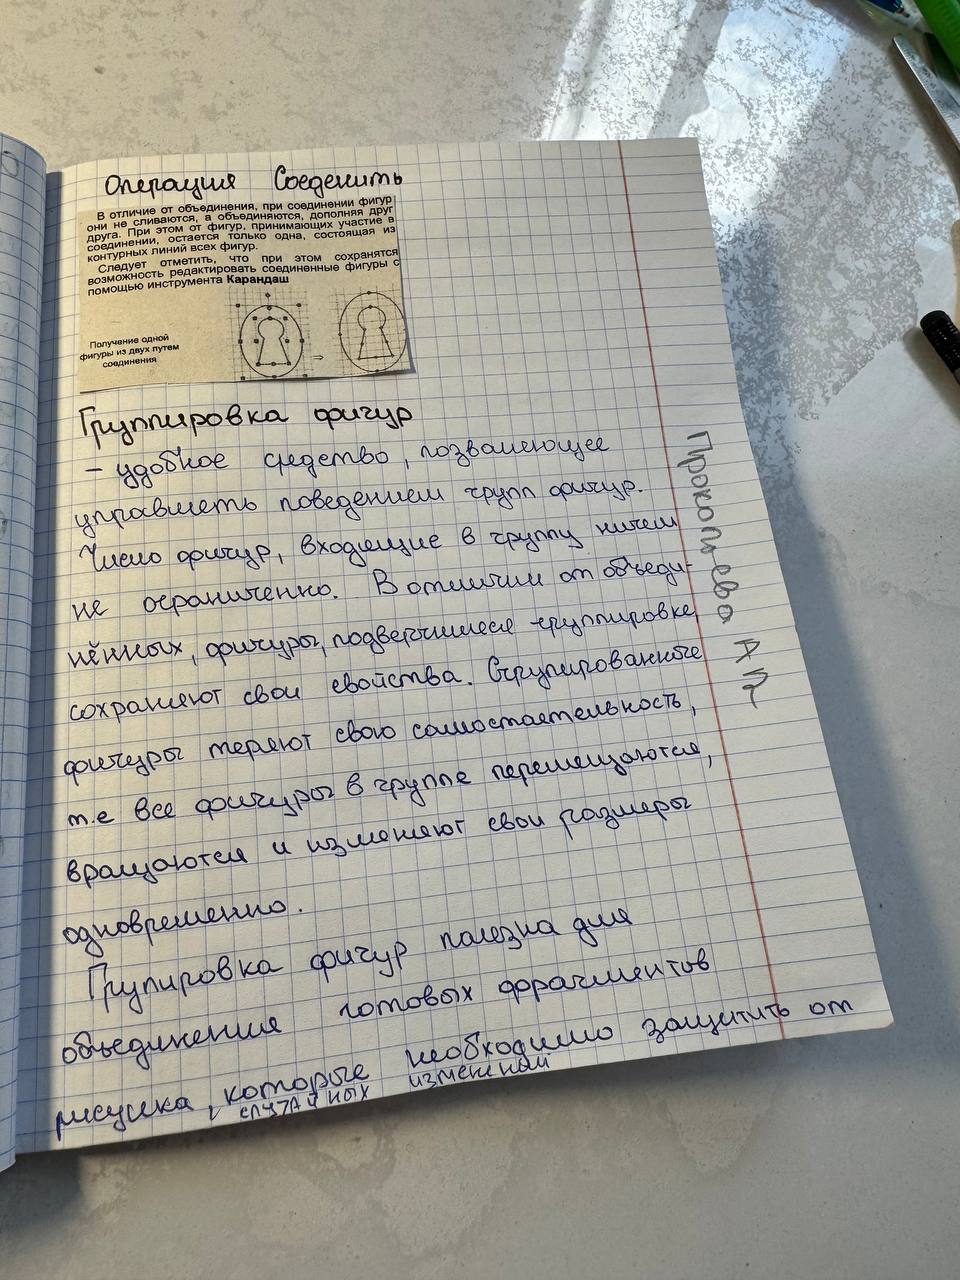 Операция Соеденить
В отличие от объединения, при соединении фигур
они не сливаются, а объединяются, дополняя друг
друга. При этом от фигур, принимающих участие в
соединении, остается только одна, состоящая из
контурных линий всех фигур.
Следует отметить, что при этом сохранятся
возможность редактировать соединенные фигуры с
помощью инструмента Карандаш
Получение одной
фигуры из двух путем
соединения
Группировка фигур
– удобное средство, позваляющее
управлять поведением групп фигур.
Число фигур, входящие в группу ничем
не ограниченно. В отличии от объеди-
нённых, фигуры, подвергшиеся группировке,
сохраняют свои свойства. Сгрупированные
фигуры теряют свою самостоятельность,
т.е все фигуры в группе перемещаются,
вращаются и изменяют свои размеры
одновременно.
Групировка фигур полезна для
объединения готовых фрагментов
рисунка, которые необходимо защитить от
случайных изменений
Прокопьева АП2